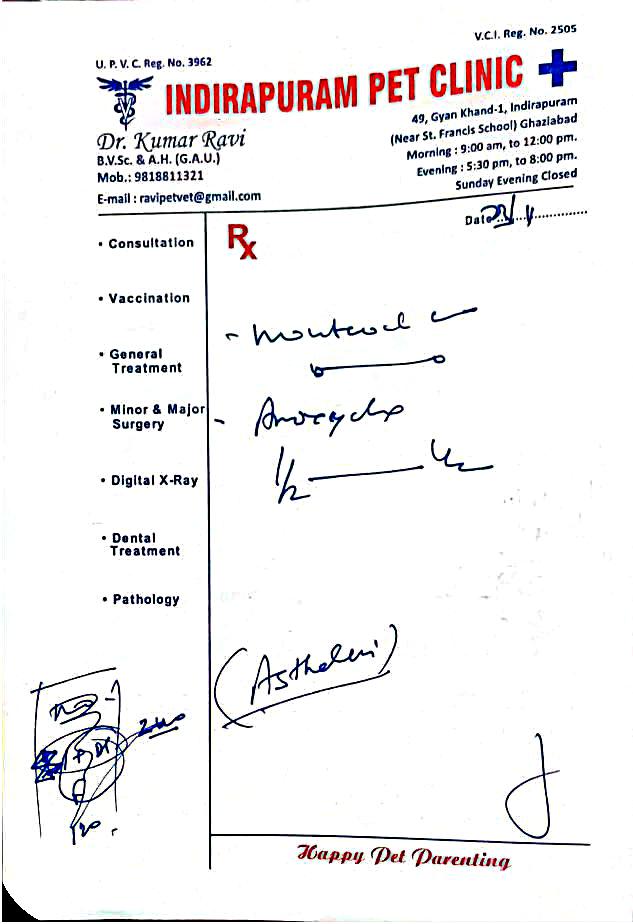 V.C.I. Reg. No. 2505
U. P. V. C. Reg. No. 3962
INDIRAPURAM PET CLINIC
Dr. Kumar Ravi
B.V.Sc. & A.H. (G.A.U.)
Mob.: 9818811321
E-mail : ravipetvet@gmail.com
49, Gyan Khand-1, Indirapuram
(Near St. Francis School) Ghaziabad
Morning : 9:00 am, to 12:00 pm.
Evening : 5:30 pm, to 8:00 pm.
Sunday Evening Closed
Date
Rx
• Consultation
• Vaccination
• General
Treatment
• Minor & Major
Surgery
• Digital X-Ray
• Dental
Treatment
• Pathology
1/2
Happy Pet Parenting